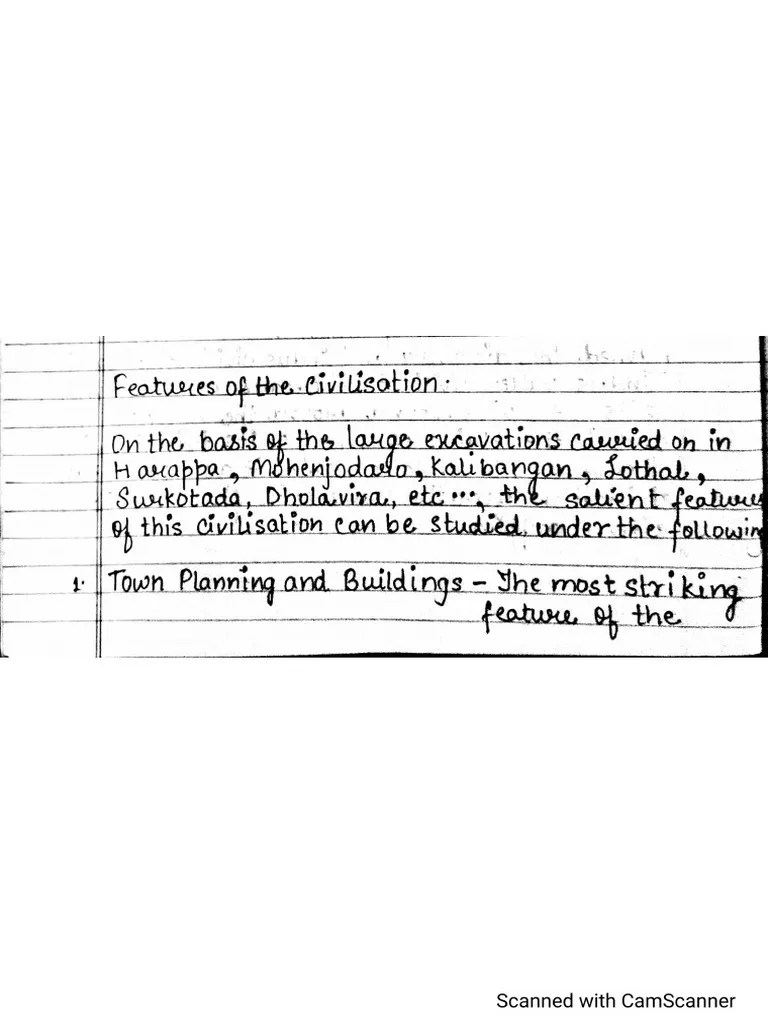 Features of the Civilisation.
On the basis of the large excavations carried on in
Harappa, Mohenjodaro, Kalibangan, Lothal,
Surkotada, Dholavira, etc..., the salient features
of this civilisation can be studied under the following
1. Town Planning and Buildings - The most striking
feature of the
Scanned with CamScanner